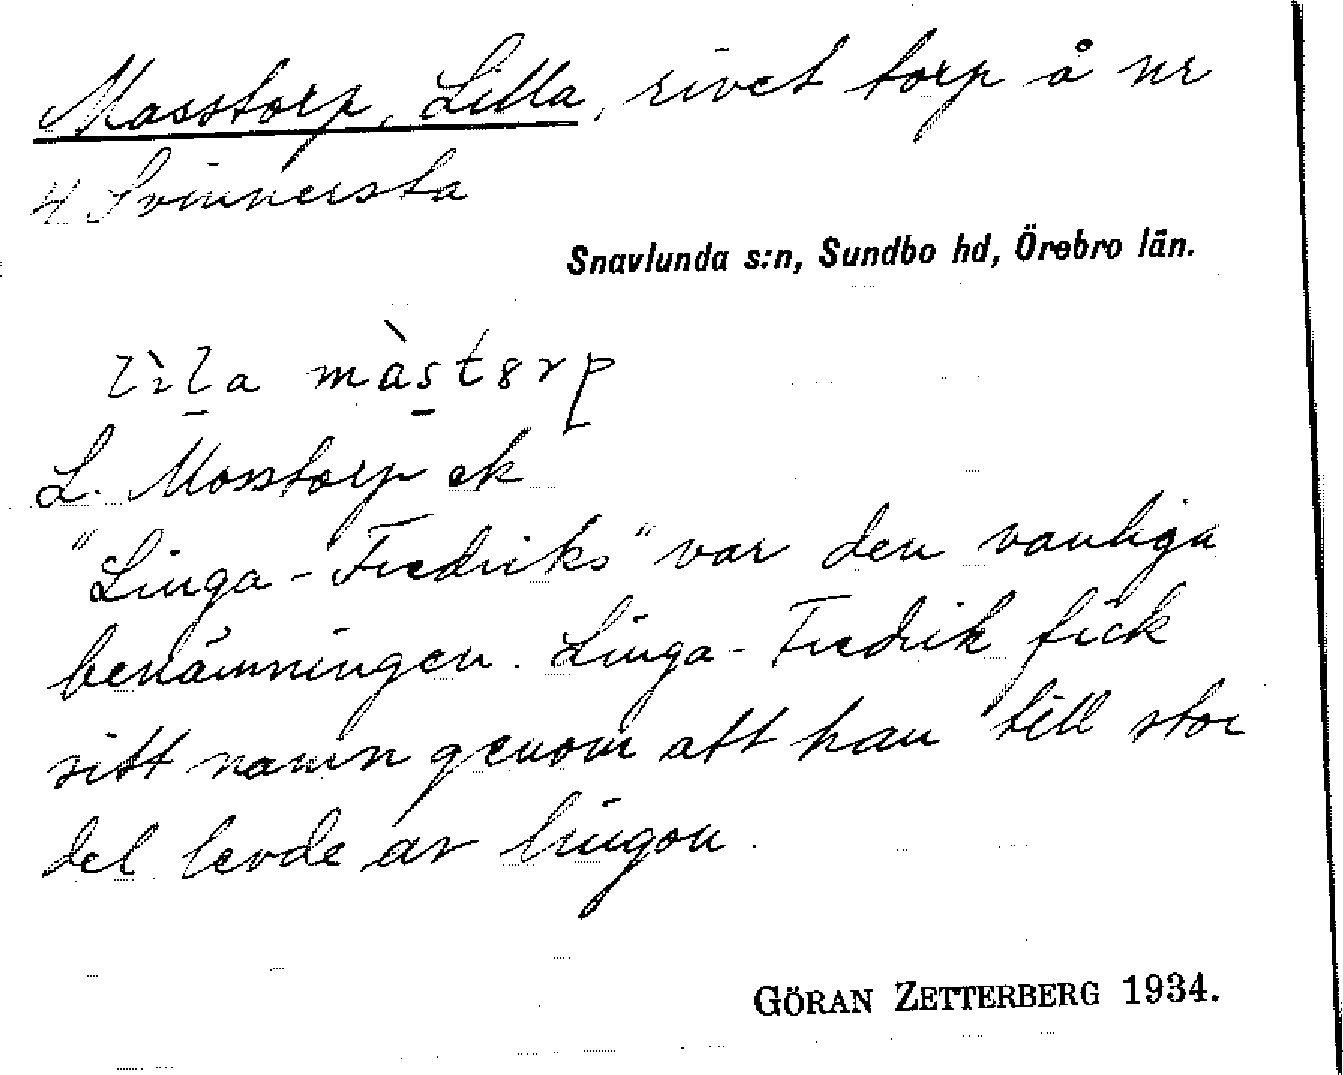 Masstorp, Lilla, rivet torp å nr
4 Svinnersta
Snavlunda s:n, Sundbo hd, Örebro län.
lìla màstɵrp
L. Mosstorp ek
"Linga-Fredriks" var den vanliga
benämningen. Linga-Fredrik fick
sitt namn genom att han till stor
del levde av lingon.
GÖRAN ZETTERBERG 1934.